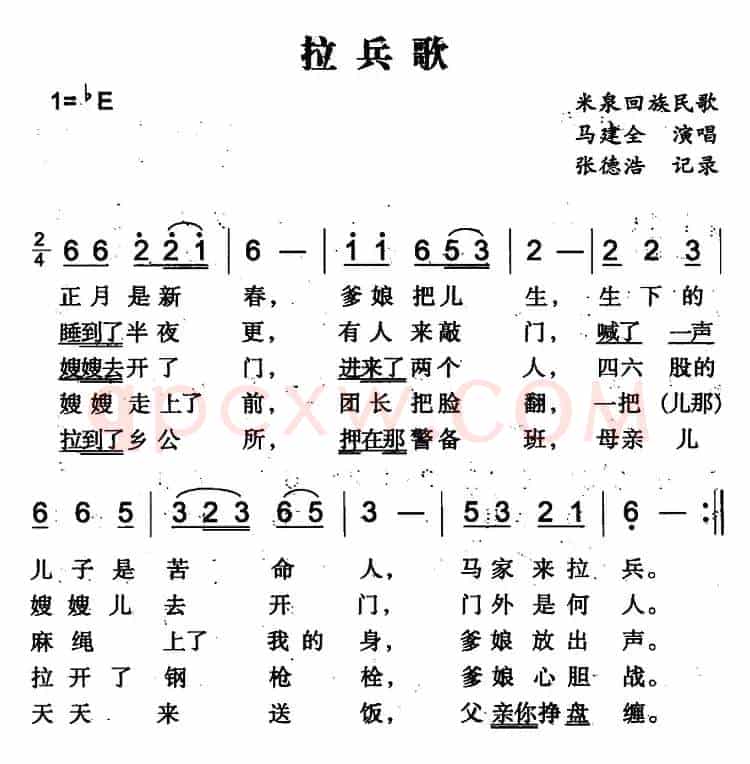 拉兵歌
1=♭E
米泉回族民歌
马建全 演唱
张德浩 记录
2/4 6 6 2̇ 2̇ 1̇ | 6 — | 1̇ 1̇ 6 5 3 | 2 — | 2 2 3
正月是新 春， 爹娘把儿 生，生下的
睡到了半夜 更， 有人来敲 门，喊了一声
嫂嫂去开了 门， 进来了两个 人，四六股的
嫂嫂走上了 前， 团长把脸 翻，一把（儿那）
拉到了乡公 所， 押在那警备 班，母亲儿
6 6 5 | 3 2 3 6 5 | 3 — | 5 3 2 1 | 6̣ — :||
儿子是苦 命 人， 马家来拉 兵。
嫂嫂儿去 开 门， 门外是何 人。
麻绳 上了 我的 身， 爹娘放出 声。
拉开了钢 枪 栓， 爹娘心胆 战。
天天 来 送 饭， 父亲你挣盘 缠。
qpcxw.COM